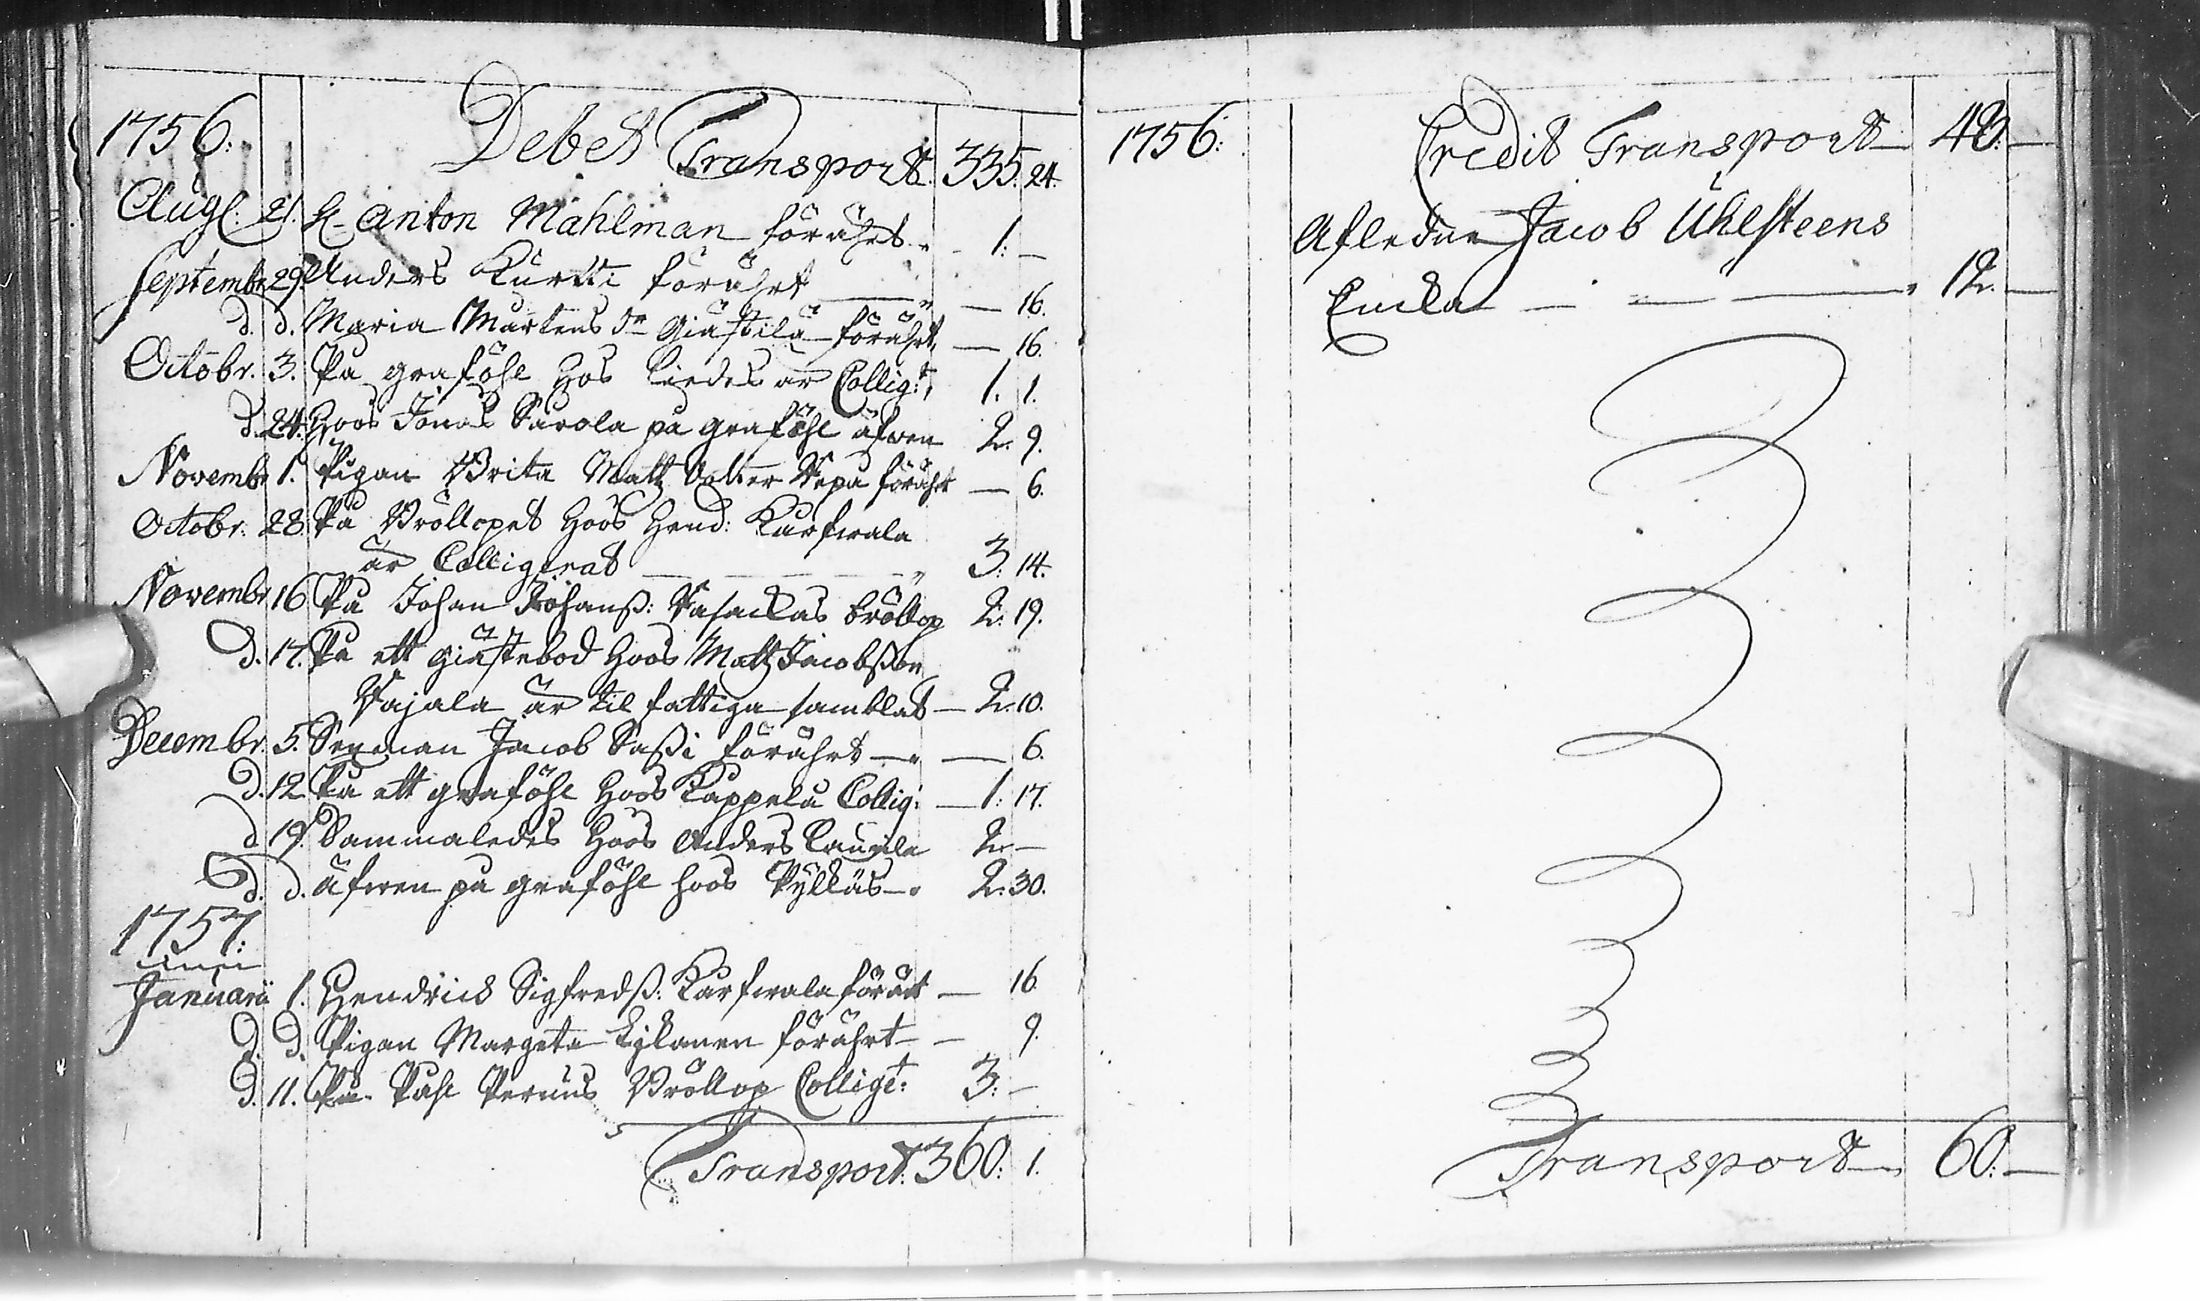 1756: Debet Transport 335. 24.
Augl. 21. H. Anton Mahlman förährt 1: —
Septembr 29 Anders Kurtti förährt — 16.
d. d. Maria Martens dr Giästilä förährt — 16.
Octobr. 3. På graföhl hos Liedes är Collig:t 1. 1.
d. 24. Hoos Jonas Sarola på graföhl äfwen 2. 9.
Novembr 1. Pigan Brita Matz dotter förährt — 6.
Octobr. 28. På Bröllopet hoos Hend: Karfwala
är Colligerat — 3. 14.
Novembr 16 På Johan Johanß: bröllop 2: 19.
d. 17. På ett giästebod hoos Matz Jacobßon
Pajala är til fattiga samblat — 2. 10.
Decembr. 5. Sexman Jacob Saßi förährt — 6.
d. 12 På ett graföhl hoos Kappela Collig: — 1: 17.
d 19. Sammaledes hoos Anders Laurila 2. —
d. d. äfwen på graföhl hoos Pylkäs — 2. 30.
1757:
Januarii 1. Hendrick Sigfredß: Karfwala förärt — 16
d. d. Pigan Margeta förährt — 9.
d. 11. På Påhl Pernus Bröllop Colligt: 3: —
Transport. 360: 1.
1756: Credit Transport 48: —
Afledne Jacob Uhlsteens
Enkla — 12. —
Transport 60: —